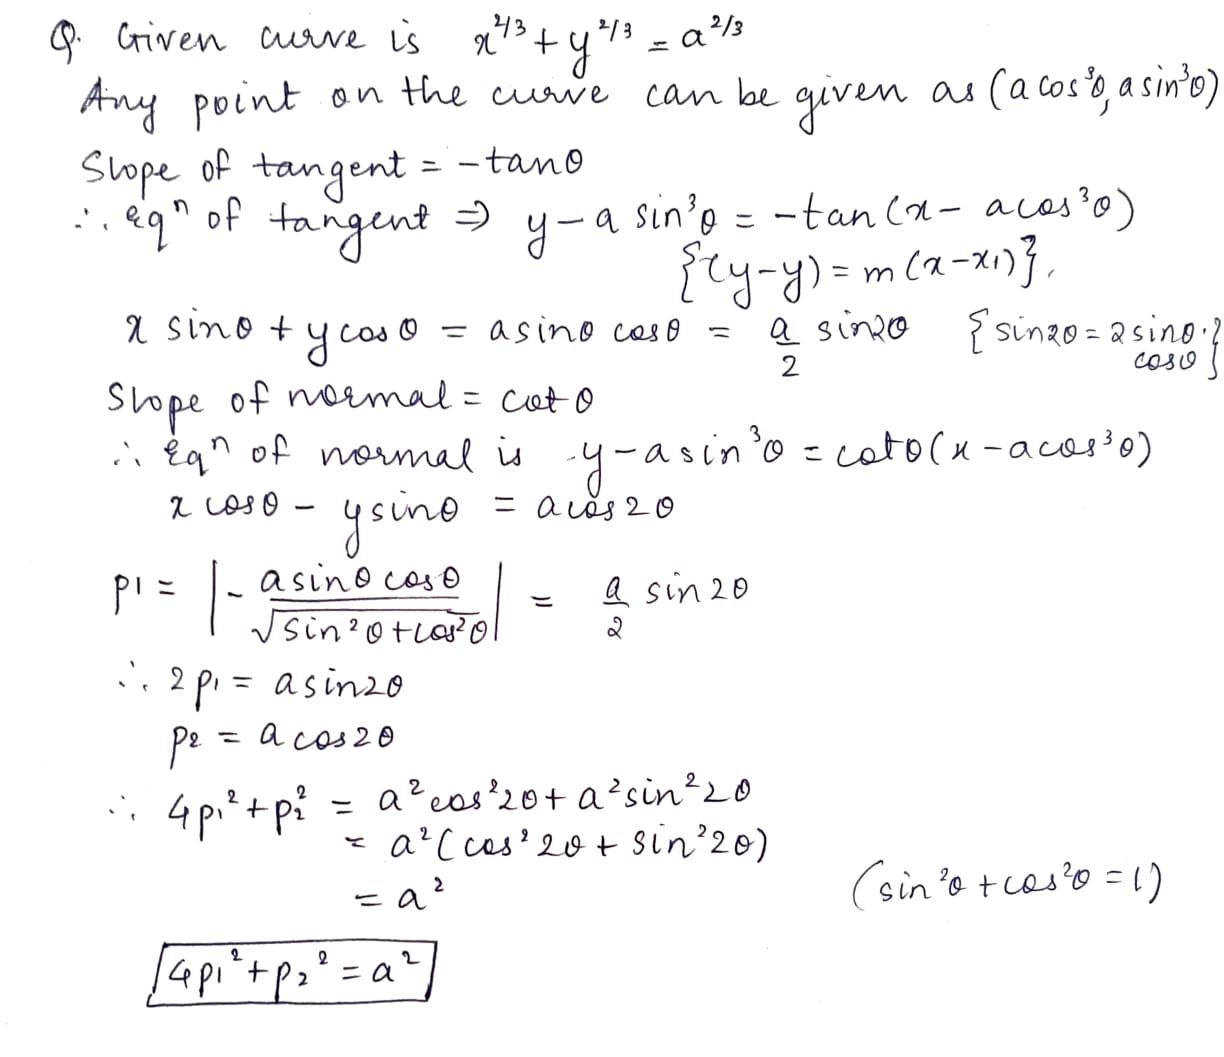 Q. Given curve is x^2/3 + y^2/3 = a^2/3
Any point on the curve can be given as (a cos³θ, a sin³θ)
Slope of tangent = -tanθ
∴ eqⁿ of tangent ⇒ y - a sin³θ = -tan(x - a cos³θ)
{(y-y) = m(x-x₁)}.
x sinθ + y cosθ = a sinθ cosθ = a/2 sin2θ {sin2θ = 2 sinθ. cosθ}
Slope of normal = cotθ
∴ Eqⁿ of normal is y - a sin³θ = cotθ(x - a cos³θ)
x cosθ - y sinθ = a cos2θ
p1 = |- a sinθ cosθ / √sin²θ + cos²θ| = a/2 sin 2θ
∴ 2p₁ = a sin2θ
p₂ = a cos2θ
∴ 4p₁² + p₂² = a² cos²2θ + a² sin²2θ
= a² (cos²2θ + sin²2θ)
= a² (sin²θ + cos²θ = 1)
4p₁² + p₂² = a²